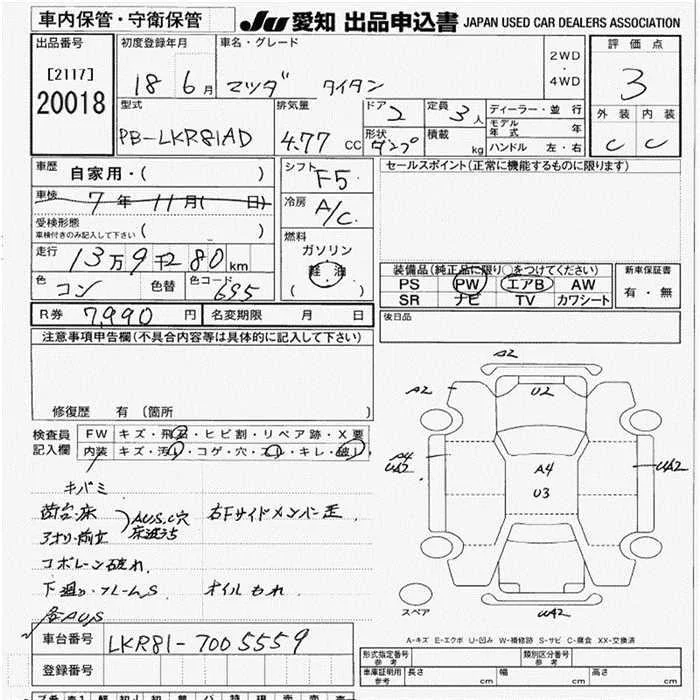 車内保管・守衛保管 JU 愛知 出品申込書 JAPAN USED CAR DEALERS ASSOCIATION
出品番号 初度登録年月 車名・グレード 2WD・4WD 評価点
[2117] 18 6月 マツダ タイタン 3
20018 型式 排気量 ドア 2 定員 3人 ディーラー・並 行 外装 内装
PB-LKR81AD 4.77 CC 形状 ダンプ 積載 kg モデル年式 年 C C
ハンドル 左・右
車歴 自家用・( ) シフト F5 セールスポイント(正常に機能するものに限ります)
車検 7年 11月( 日) 冷房 A/C
受検形態
車検付きのみ記入して下さい ( )
燃料
走行 13万9千280km ガソリン
軽・油
( )
色 コン 色替 色コード 695
装備品(純正品に限り○をつけてください) 新車保証書
PS PW エアB AW 有・無
SR ナビ TV カワシート
R券 7,990円 名変期限 月 日 後日品
注意事項申告欄(不具合内容等は具体的に記入して下さい)
修復歴 有(箇所 )
検査員記入欄 FW キズ・飛石・ヒビ割・リペア跡・X要
内装 キズ・汚レ・コゲ・穴・スレ・キレ・破レ
キバミ
荷台・床 AUS,C穴 右Fサイドメンバー歪
床波うち
下廻り・フレームS オイルもれ
A2
A2 U2
A4 UA2
A4
U3
UA2
UA2
スペア
A-キズ E-エクボ U-凹み W-補修跡 S-サビ C-腐食 XX-交換済
車台番号 LKR81-7005559
登録番号
形式指定番号 参考 類別区分番号 参考
車庫証明用 参考 長さ cm 幅 cm 高さ cm